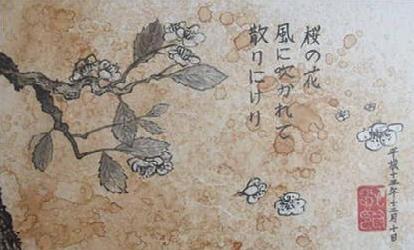 桜の花
風に吹かれて
散りにけり
平成十五年十二月十日